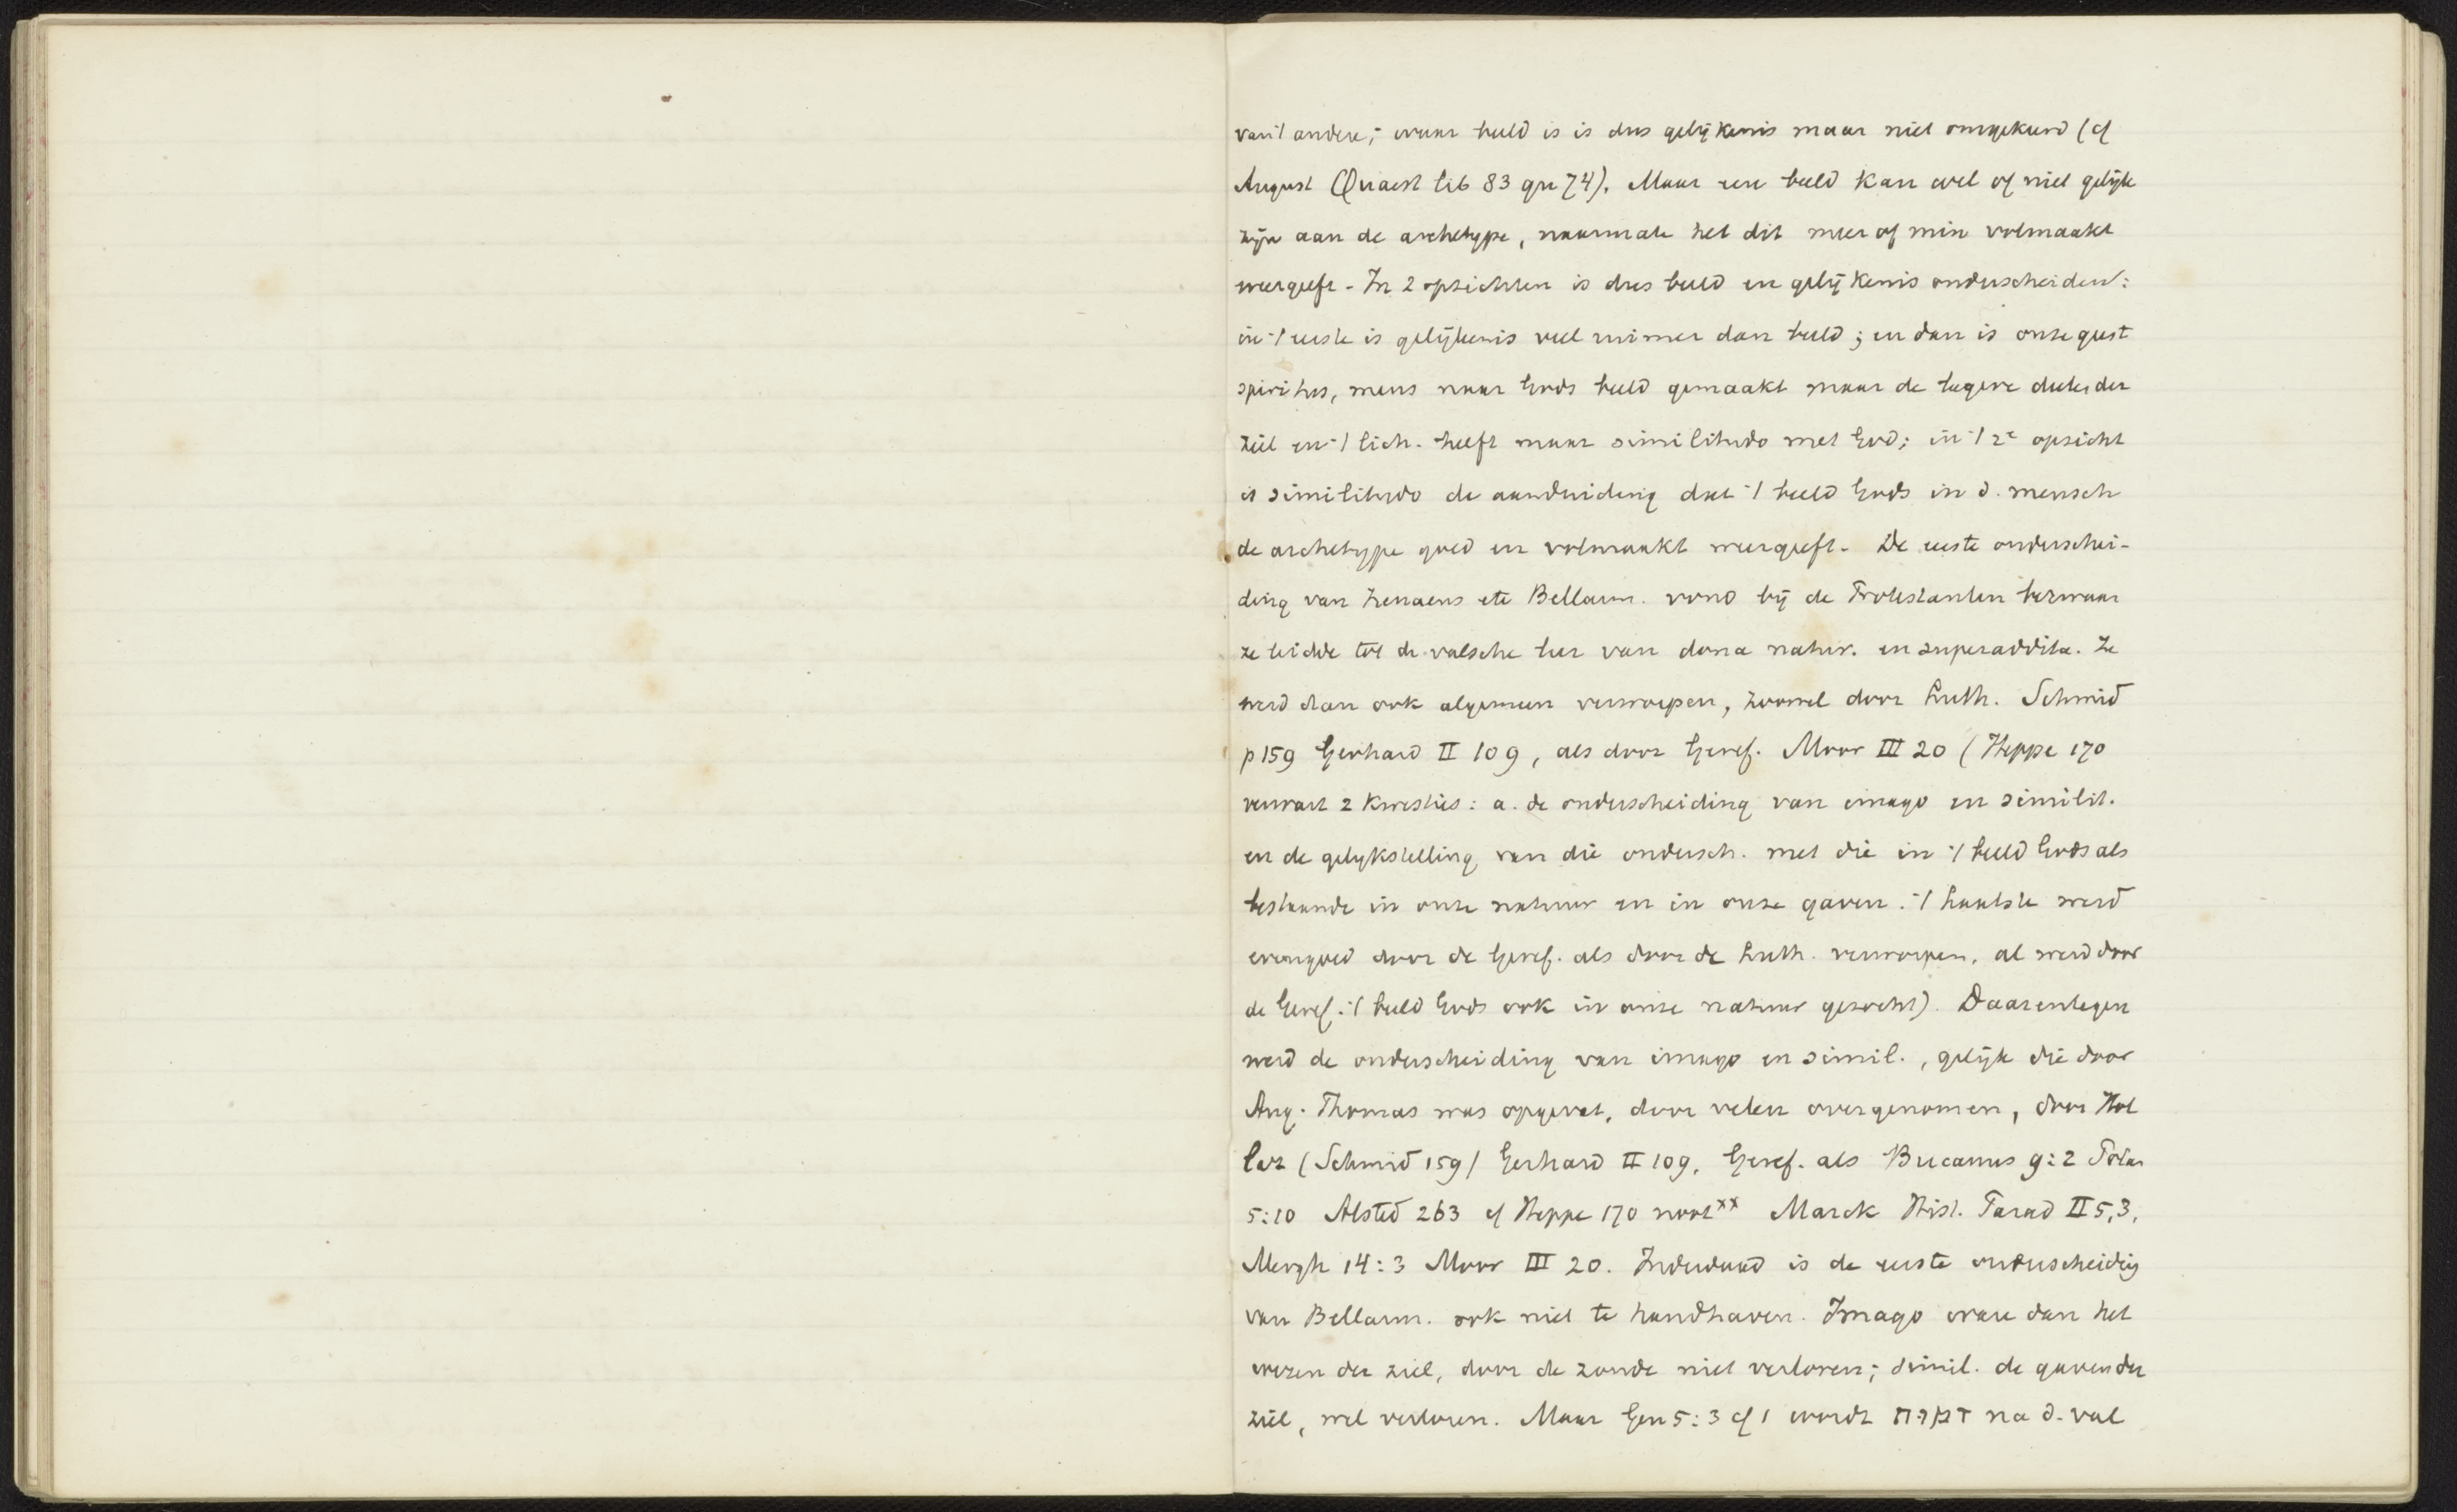 van 't andere; waar beeld is is dus gelijkenis maar niet omgekeerd (cf
August Quaest lib 83 qu 74). Maar een beeld kan wel of niet gelijk
zijn aan de archetype, naarmate het dit meer of min volmaakt
weergeeft - In 2 opzichten is dus beeld en gelijkenis onderscheiden:
in 't eerste is gelijkenis veel ruimer dan beeld; en dan is onze geest
spiritus, mens naar Gods beeld gemaakt maar de lagere deelen der
ziel en 't lich. heeft maar similitudo met God; in 't 2e opzicht
is similitudo de aanduiding dat 't beeld Gods in d. mensch
de archetype goed en volmaakt weergeeft - De eerste onderschei-
ding van Irenaeus etc Bellarm. vond bij de Protestanten bezwaar
ze leidde tot de valsche leer van dona natur. en superaddita. Ze
werd dan ook algemeen verworpen, zoowel door Luth. Schmid
p 159 Gerhard II 109, als door Geref. Moor III 20 (Heppe 170
verwart 2 kwesties: a. de onderscheiding van imago en similit.
en de gelykstelling van die ondersch. met die in 't beeld Gods als
bestaande in onze natuur en in onze gaven. 't Laatste werd
evengoed door de Geref. als door de Luth. verworpen, al werd door
de Geref. 't beeld Gods ook in onze natuur gezocht). Daarentegen
werd de onderscheiding van imago en simil., gelijk die door
Aug. Thomas was opgevat, door velen overgenomen, door Hol
laz (Schmid 159) Gerhard II 109, Geref. als Bucanus 9:2 Polan
5:10 Alsted 263 cf Heppe 170 noot xx Marck Hist. Parad II 5,3,
Mergh 14:3 Moor III 20. Inderdaad is de eerste onderscheidig
van Bellarm. ook niet te handhaven. Imago ware dan het
wezen der ziel, door de zonde niet verloren; simil. de gaven der
ziel, wel verloren. Maar Gen 5:3 cf 1 wordt na d. val